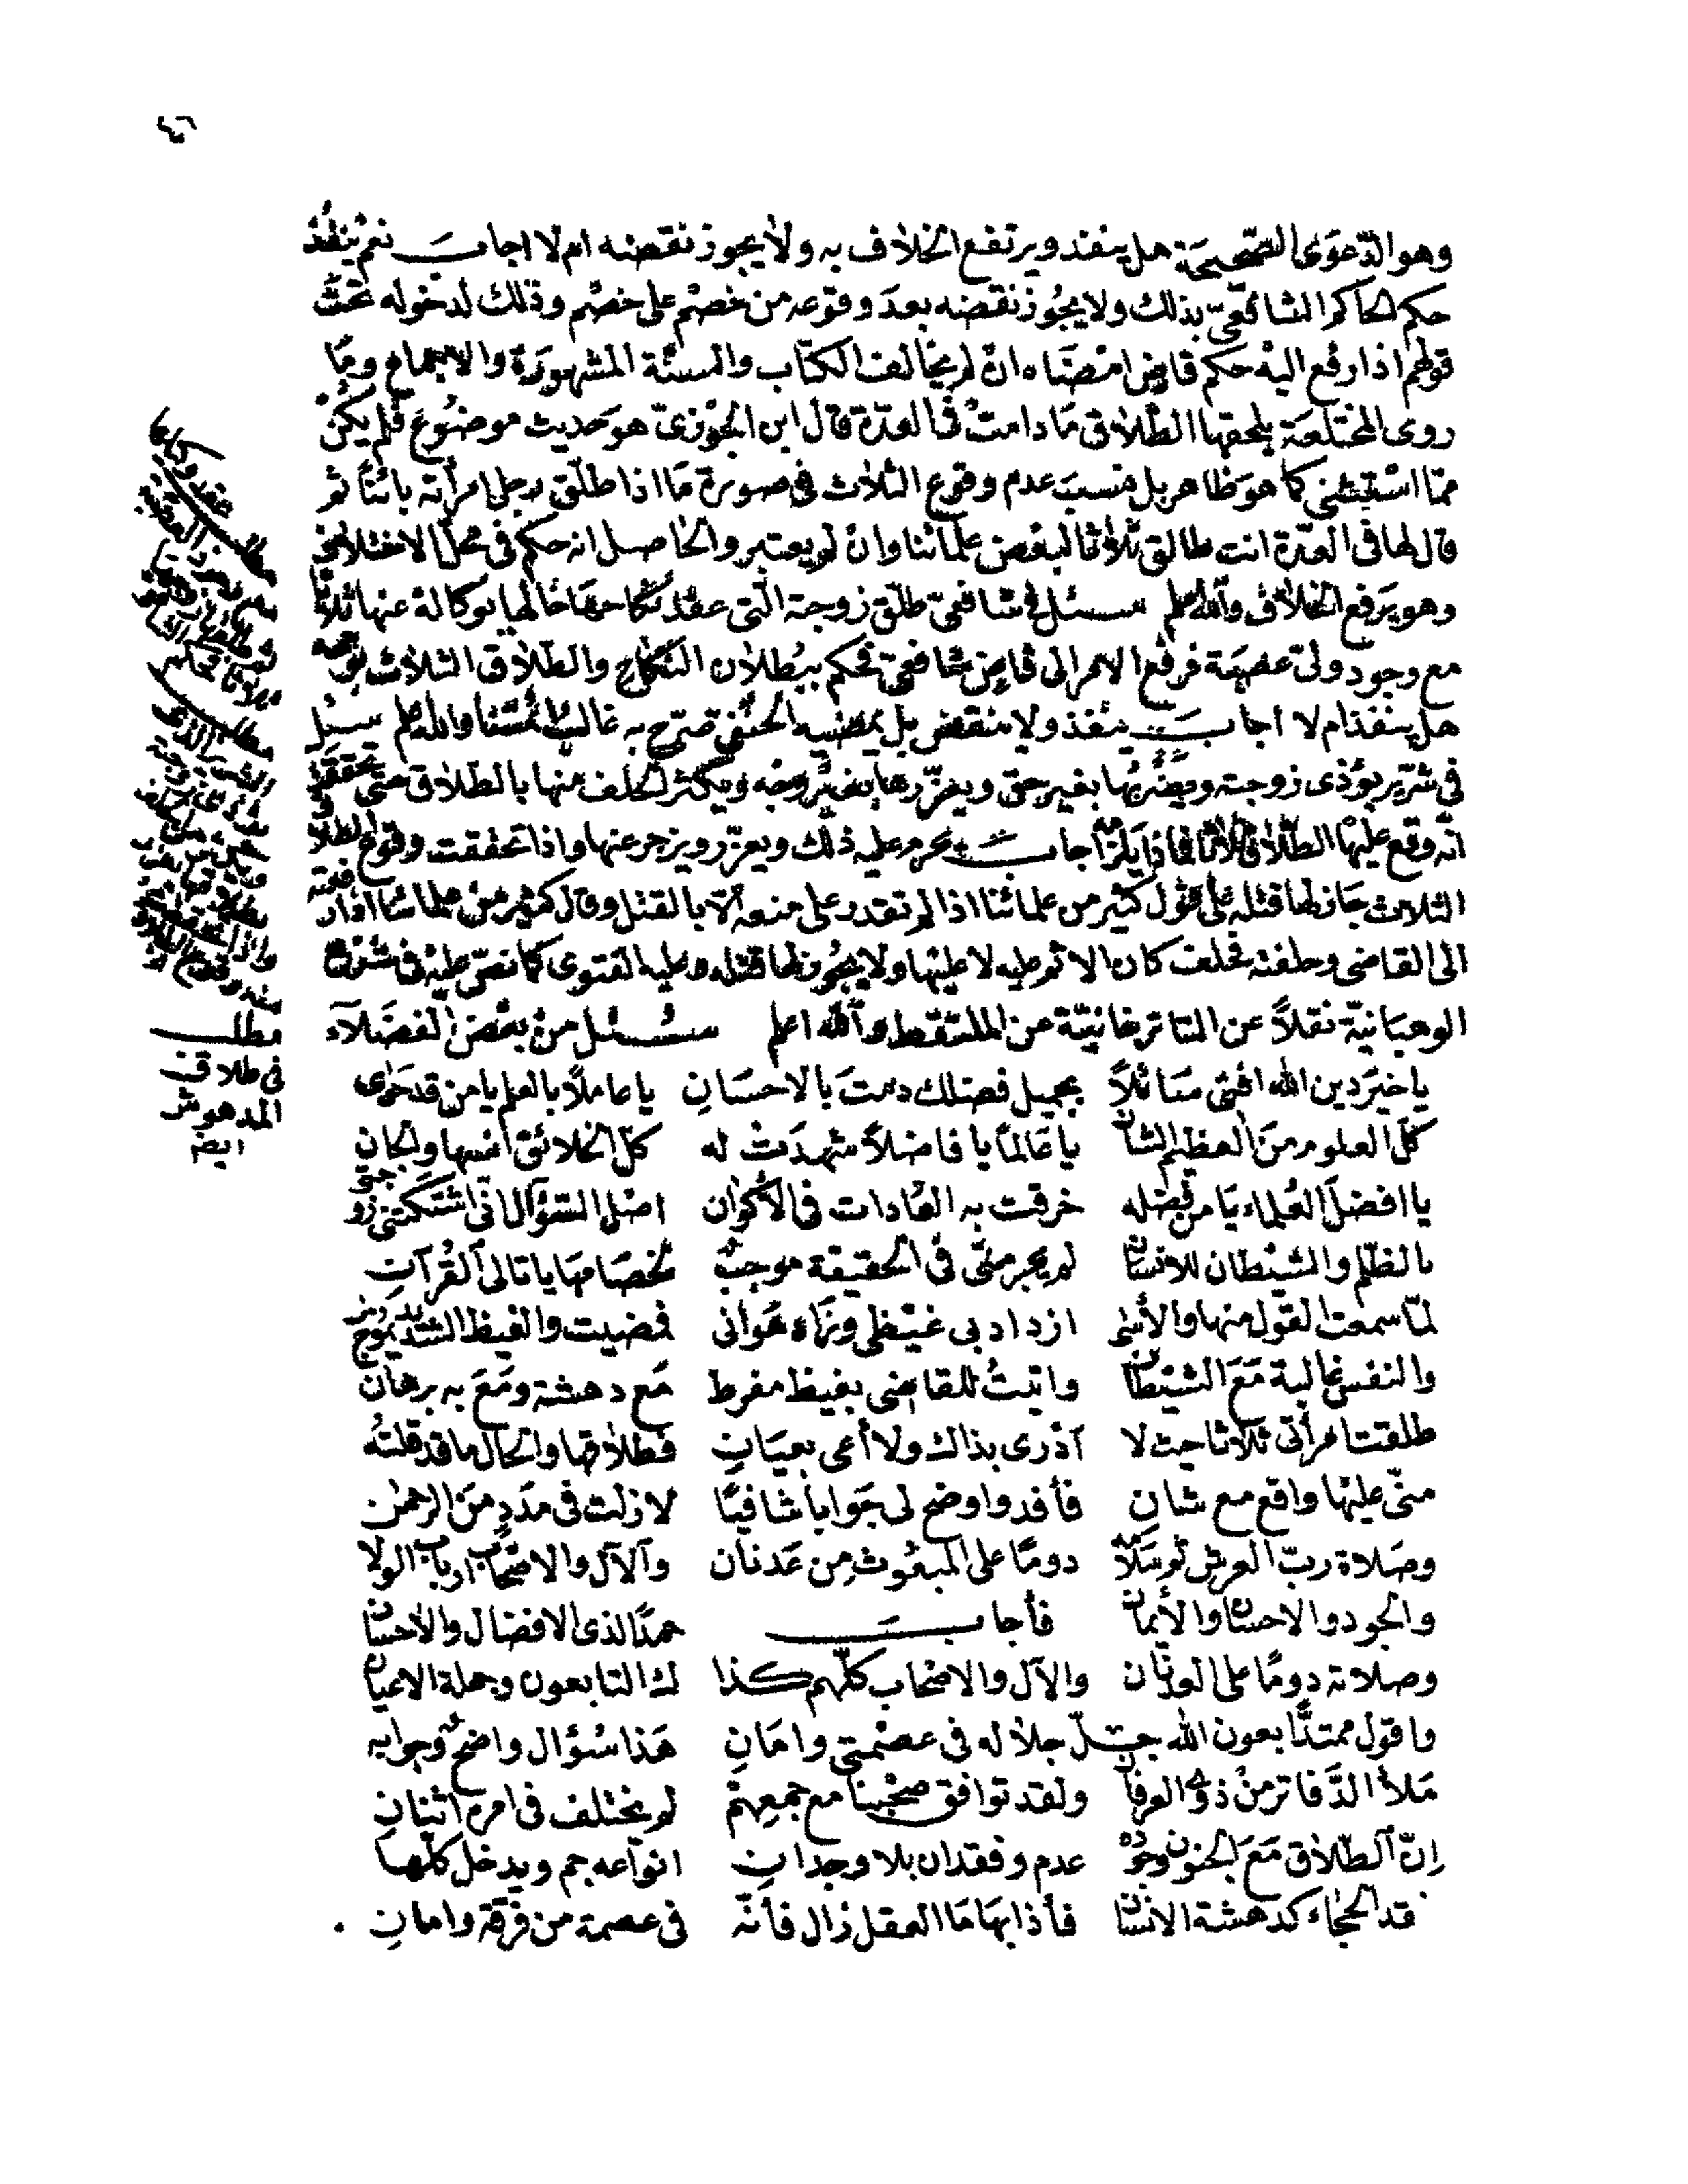 ٤٦
وهو الدّعوى الصّحيحة هل ينفذ ويرتفع الخلاف به ولا يجوز نقضه ام لا اجاب نعم ينفذ
حكم الحاكم الشافعيّ بذلك ولا يجوز نقضه بعد وقوعه من خصم على خصم وذلك لدخوله تحت
قولهم اذا رفع اليه حكم قاض امضاه ان لم يخالف الكتاب والسنّة المشهورة والاجماع وما
روى المختلعة يلحقها الطلاق ما دامت فى العدّة قال ابن الجوزىّ هو حديث موضوع فلم يكن
ممّا استثنى كما هو ظاهر بل نسب عدم وقوع الثلاث فى صورة ما اذا طلّق رجل امرأته بائنًا ثم
قال لها فى العدّة انت طالق ثلاثًا لبعض علمائنا وان لم يعتبر والحاصل انه حكم فى محلّ الاختلاف
وهو يرفع الخلاف والله اعلم سئل فى شافعىّ طلّق زوجته الّتى عقد نكاحها خالها بوكالة عنها ثلاثًا
مع وجود ولىّ عصبة فرفع الامر الى قاض شافعىّ فحكم ببطلان النكاح والطلاق الثلاث بوجهه
هل ينفذ ام لا اجاب ينفذ ولا ينقض بل يمضيه الحنفى صرّح به غالب ائمّتنا والله اعلم سئل
فى شرّير يؤذى زوجته ويضربها بغير حق ويعزّرها بغير وجه ويكثر الحلف منها بالطلاق حتى تحققت
انّه وقع عليها الطّلاق ثلاثًا فماذا يلزم اجاب يحرم عليه ذلك ويعزّر ويزجر عنها واذا تحققت وقوع الطلاق
الثلاث جاز لها قتله على قول كثير من علمائنا اذا لم تقدر على منعه الّا بالقتل وقال كثير من علمائنا اذا رفعته
الى القاضى وحلفته فحلف كان الاثم عليه لا عليها ولا يجوز لها قتله وعليه الفتوى كما نصّ عليه فى شرح
الوهبانيّة نقلًا عن التاترخانيّة عن الملتقط والله اعلم سئل من بعض الفضلآء
يا خير دين الله افتى سائلًا بجميل فضلك دمت بالاحسان يا عاملًا بالعلم يا من قد حوى
كلّ العلوم من العظيم الشان يا عالمًا يا فاضلًا شهدت له كلّ الخلائق انسها والجان
يا افضل العلماء يا من فضله خرقت به العادات فى الاكوان اصل السّؤال انّى اشتكتنى زوجتى
بالظلم والشيطان للانسان لم يجر منّى فى الحقيقة موجب لخصامها يا تالى القرآن
لمّا سمعت القول منها والأذى ازداد بى غيظى وزاد هوانى فمضيت والغيظ الشديد يموج بى
والنفس غالبة مع الشيطان واتيت للقاضى بغيظ مفرط مع دهشة ومع به برهان
طلقت امرأتى ثلاثًا حيث لا أدرى بذاك ولا أعى بعيان فطلاقها والحال ما قد قلته
منّى عليها واقع مع شان فأفد واوضح لى جوابا شافيًا لا زلت فى مدد من الرحمن
وصلاة ربّ العرش ثم سلامه دومًا على المبعوث من عدنان والآل والاصحاب ارباب الولا
والجود والاحسان والأيمان فأجاب حمدًا لذى الافضال والاحسان
وصلاته دومًا على العدنان والآل والاصحاب كلّهم كذا لك التابعون وجملة الاعيان
واقول ممتدًّا بعون الله جلّ جلاله فى عصمتى وامان هذا سؤال واضح وجوابه
ملأ الدّفاتر من ذوى العرفان ولقد توافق صحبنا مع جمعهم لم يختلف فى امره اثنان
إنّ الطّلاق مع الجنون وجوده عدم وفقدان بلا وجدان انواعه جم ويدخل كلّها
قد الحجاء كدهشة الانسان فأذا بها ما العقل زال فأنّه فى عصمة من فرقة وامان
مطلب
فى طلاق
المدهوش
ايضا